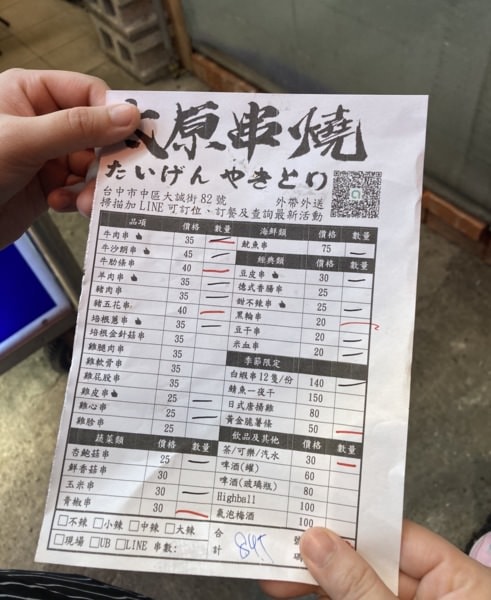 原串燒
たいげん やきとり
台中市中區大誠街82號 外帶外送
掃描加LINE可訂位、訂餐及查詢最新活動
品項 價格 數量
牛肉串 35
牛沙朗串 45
牛肋條串 40
羊肉串 35
豬肉串 35
豬五花串 40
培根蔥串 35
培根金針菇串 35
雞腿肉串 35
雞軟骨串 35
雞屁股串 35
雞皮串 25
雞心串 25
雞胗串 25
蔬菜類 價格 數量
杏鮑菇串 25
鮮香菇串 30
玉米串 30
青椒串 30
□不辣 □小辣 □中辣 □大辣
□現場 □UB □LINE 串數:
海鮮類 價格 數量
魷魚串 75
經典類 價格 數量
豆皮串 30
德式香腸串 25
甜不辣串 25
黑輪串 20
豆干串 20
米血串 20
季節限定
白蝦串12隻/份 140
鯖魚一夜干 150
日式唐揚雞 80
黃金脆薯條 50
飲品及其他 價格 數量
茶/可樂/汽水 30
啤酒(罐) 60
啤酒(玻璃瓶) 80
Highball 100
氣泡梅酒 100
合計 845